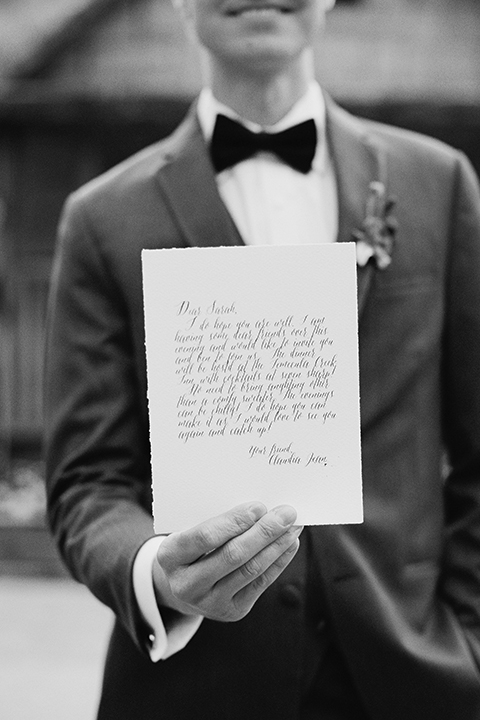 Dear Sarah,
I do hope you are well. I am
having some dear friends over this
evening and would like to invite you
and Ben to join us. The dinner
will be held at the Temecula Creek
Inn with cocktails at seven sharp!
No need to bring anything other
than a comfy sweater. The evenings
can be chilly! I do hope you can
make it as I would love to see you
again and catch up!
Your friend,
Claudia Jean.